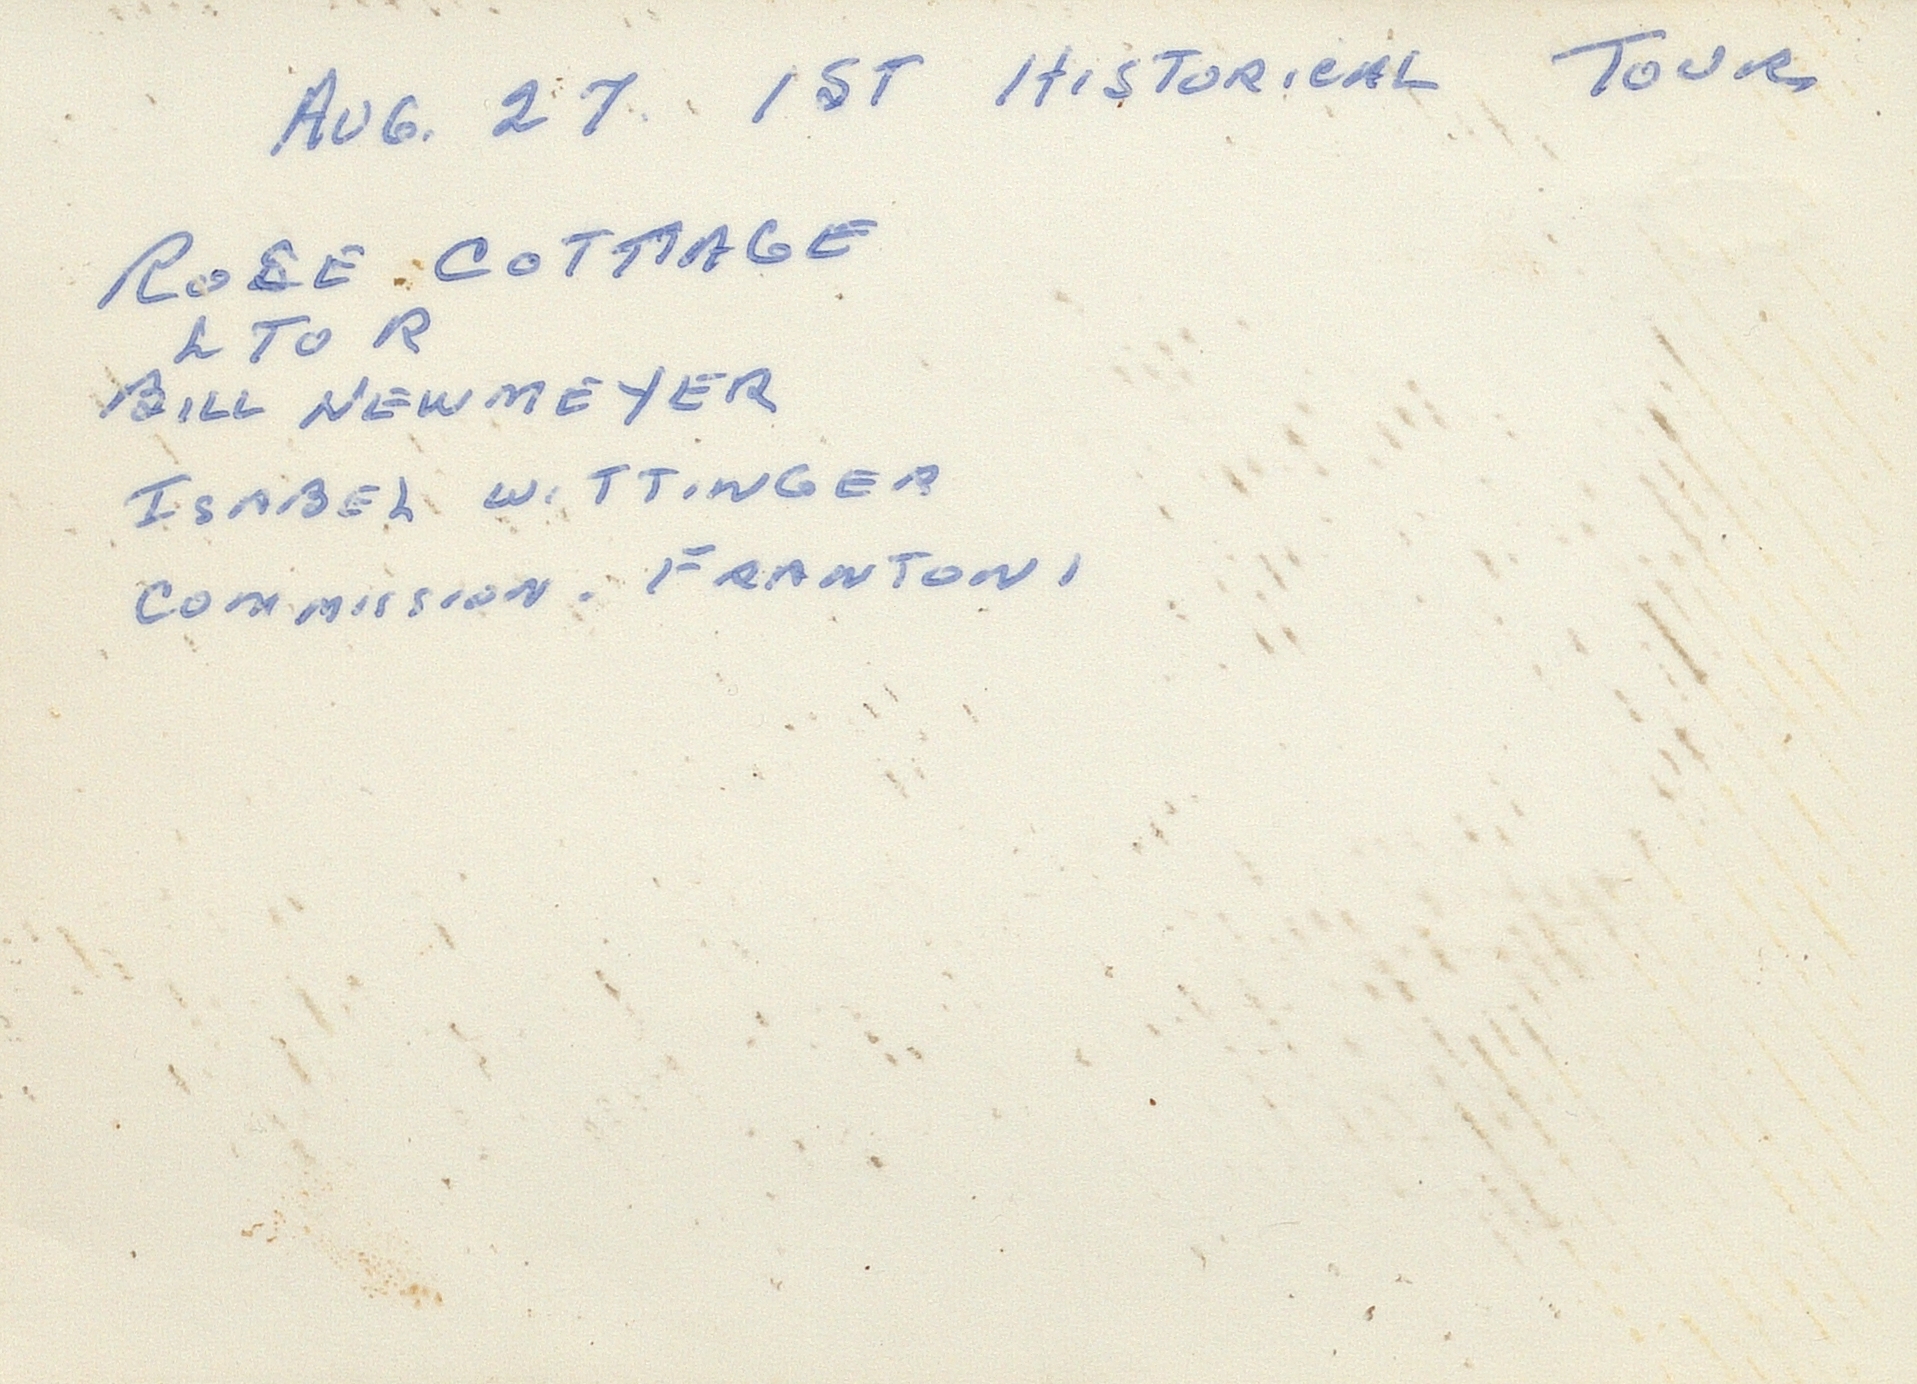 AUG. 27. 1ST HISTORICAL TOUR
ROSE COTTAGE
L TO R
BILL NEWMEYER
ISABEL WITTINGER
COMMISSION. FRANTONI